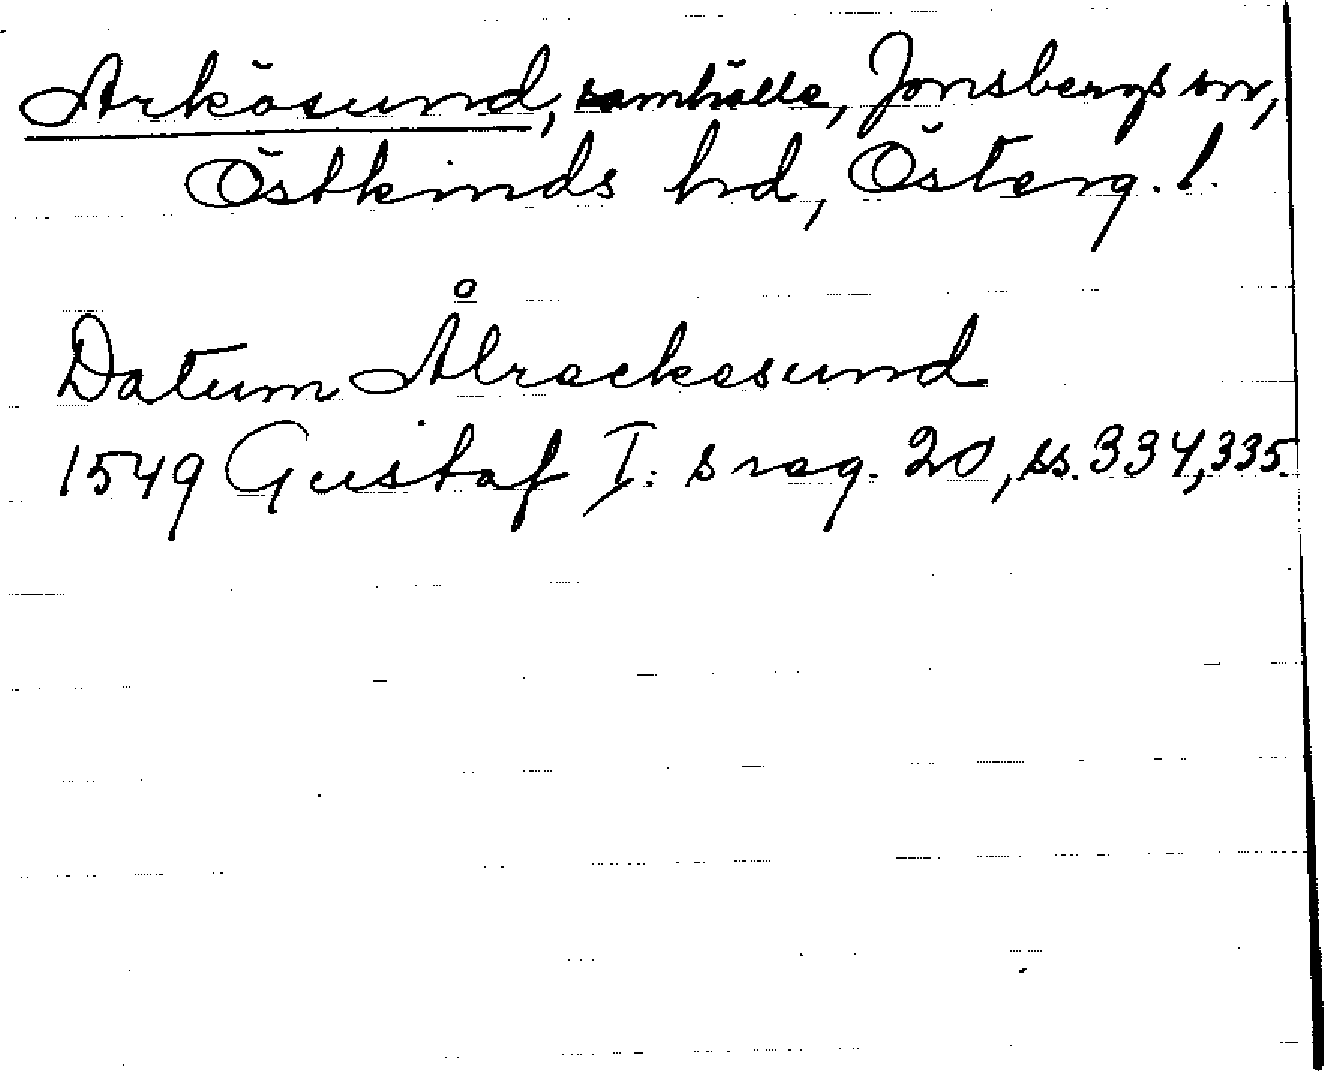 Arkösund, samhälle, Jonsbergs sn,
Östkinds hd, Österg. l.
Datum Ålreckesund
1549 Gustaf I:s reg. 20, ss. 334, 335.